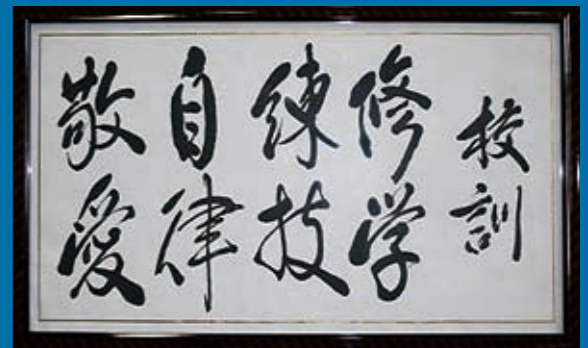 校訓
修学
練技
自律
敬愛